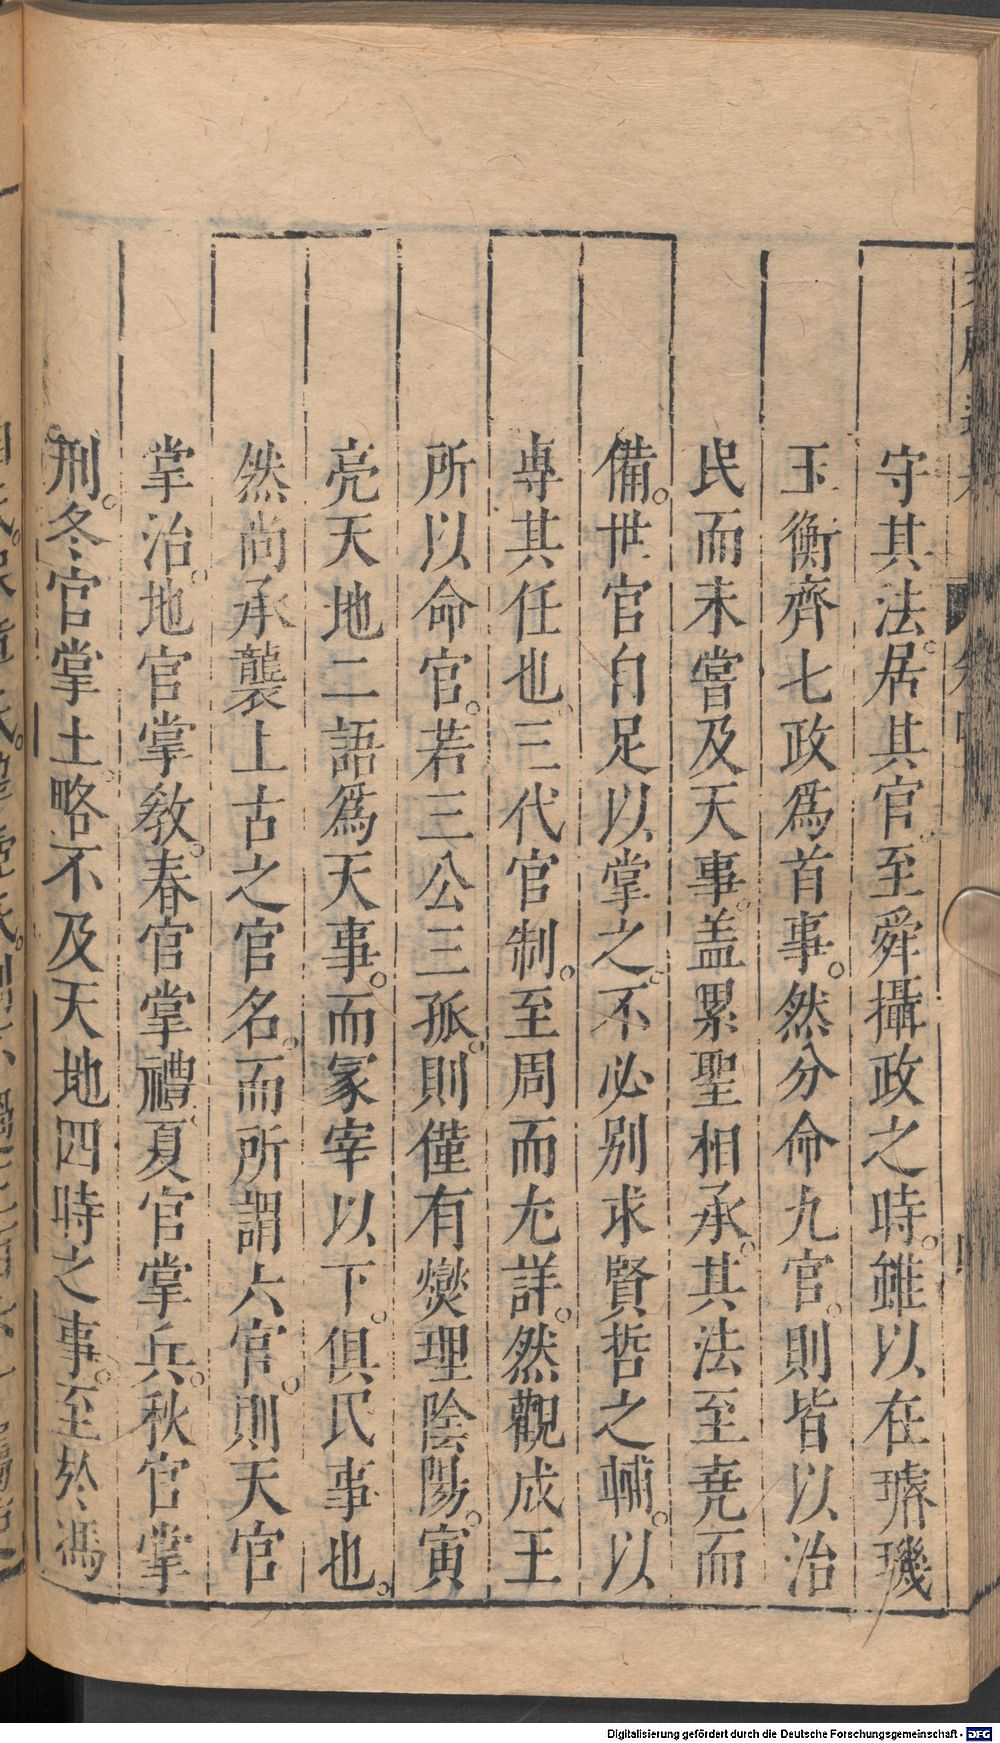 守其法。居其官。至舜攝政之時。雖以在璿璣
玉衡齊七政爲首事。然分命九官。則皆以治
民而未嘗及天事。盖累聖相承。其法至堯而
備。世官自足以掌之。不必別求賢哲之輔。以
專其任也。三代官制。至周而尤詳。然觀成王
所以命官。若三公三孤。則僅有燮理陰陽。寅
亮天地二語爲天事。而冢宰以下。俱民事也。
然尚承襲上古之官名。而所謂六官。則天官
掌治。地官掌敎。春官掌禮。夏官掌兵。秋官掌
刑。冬官掌土。略不及天地四時之事。至於馮
Digitalisierung gefördert durch die Deutsche Forschungsgemeinschaft - DFG